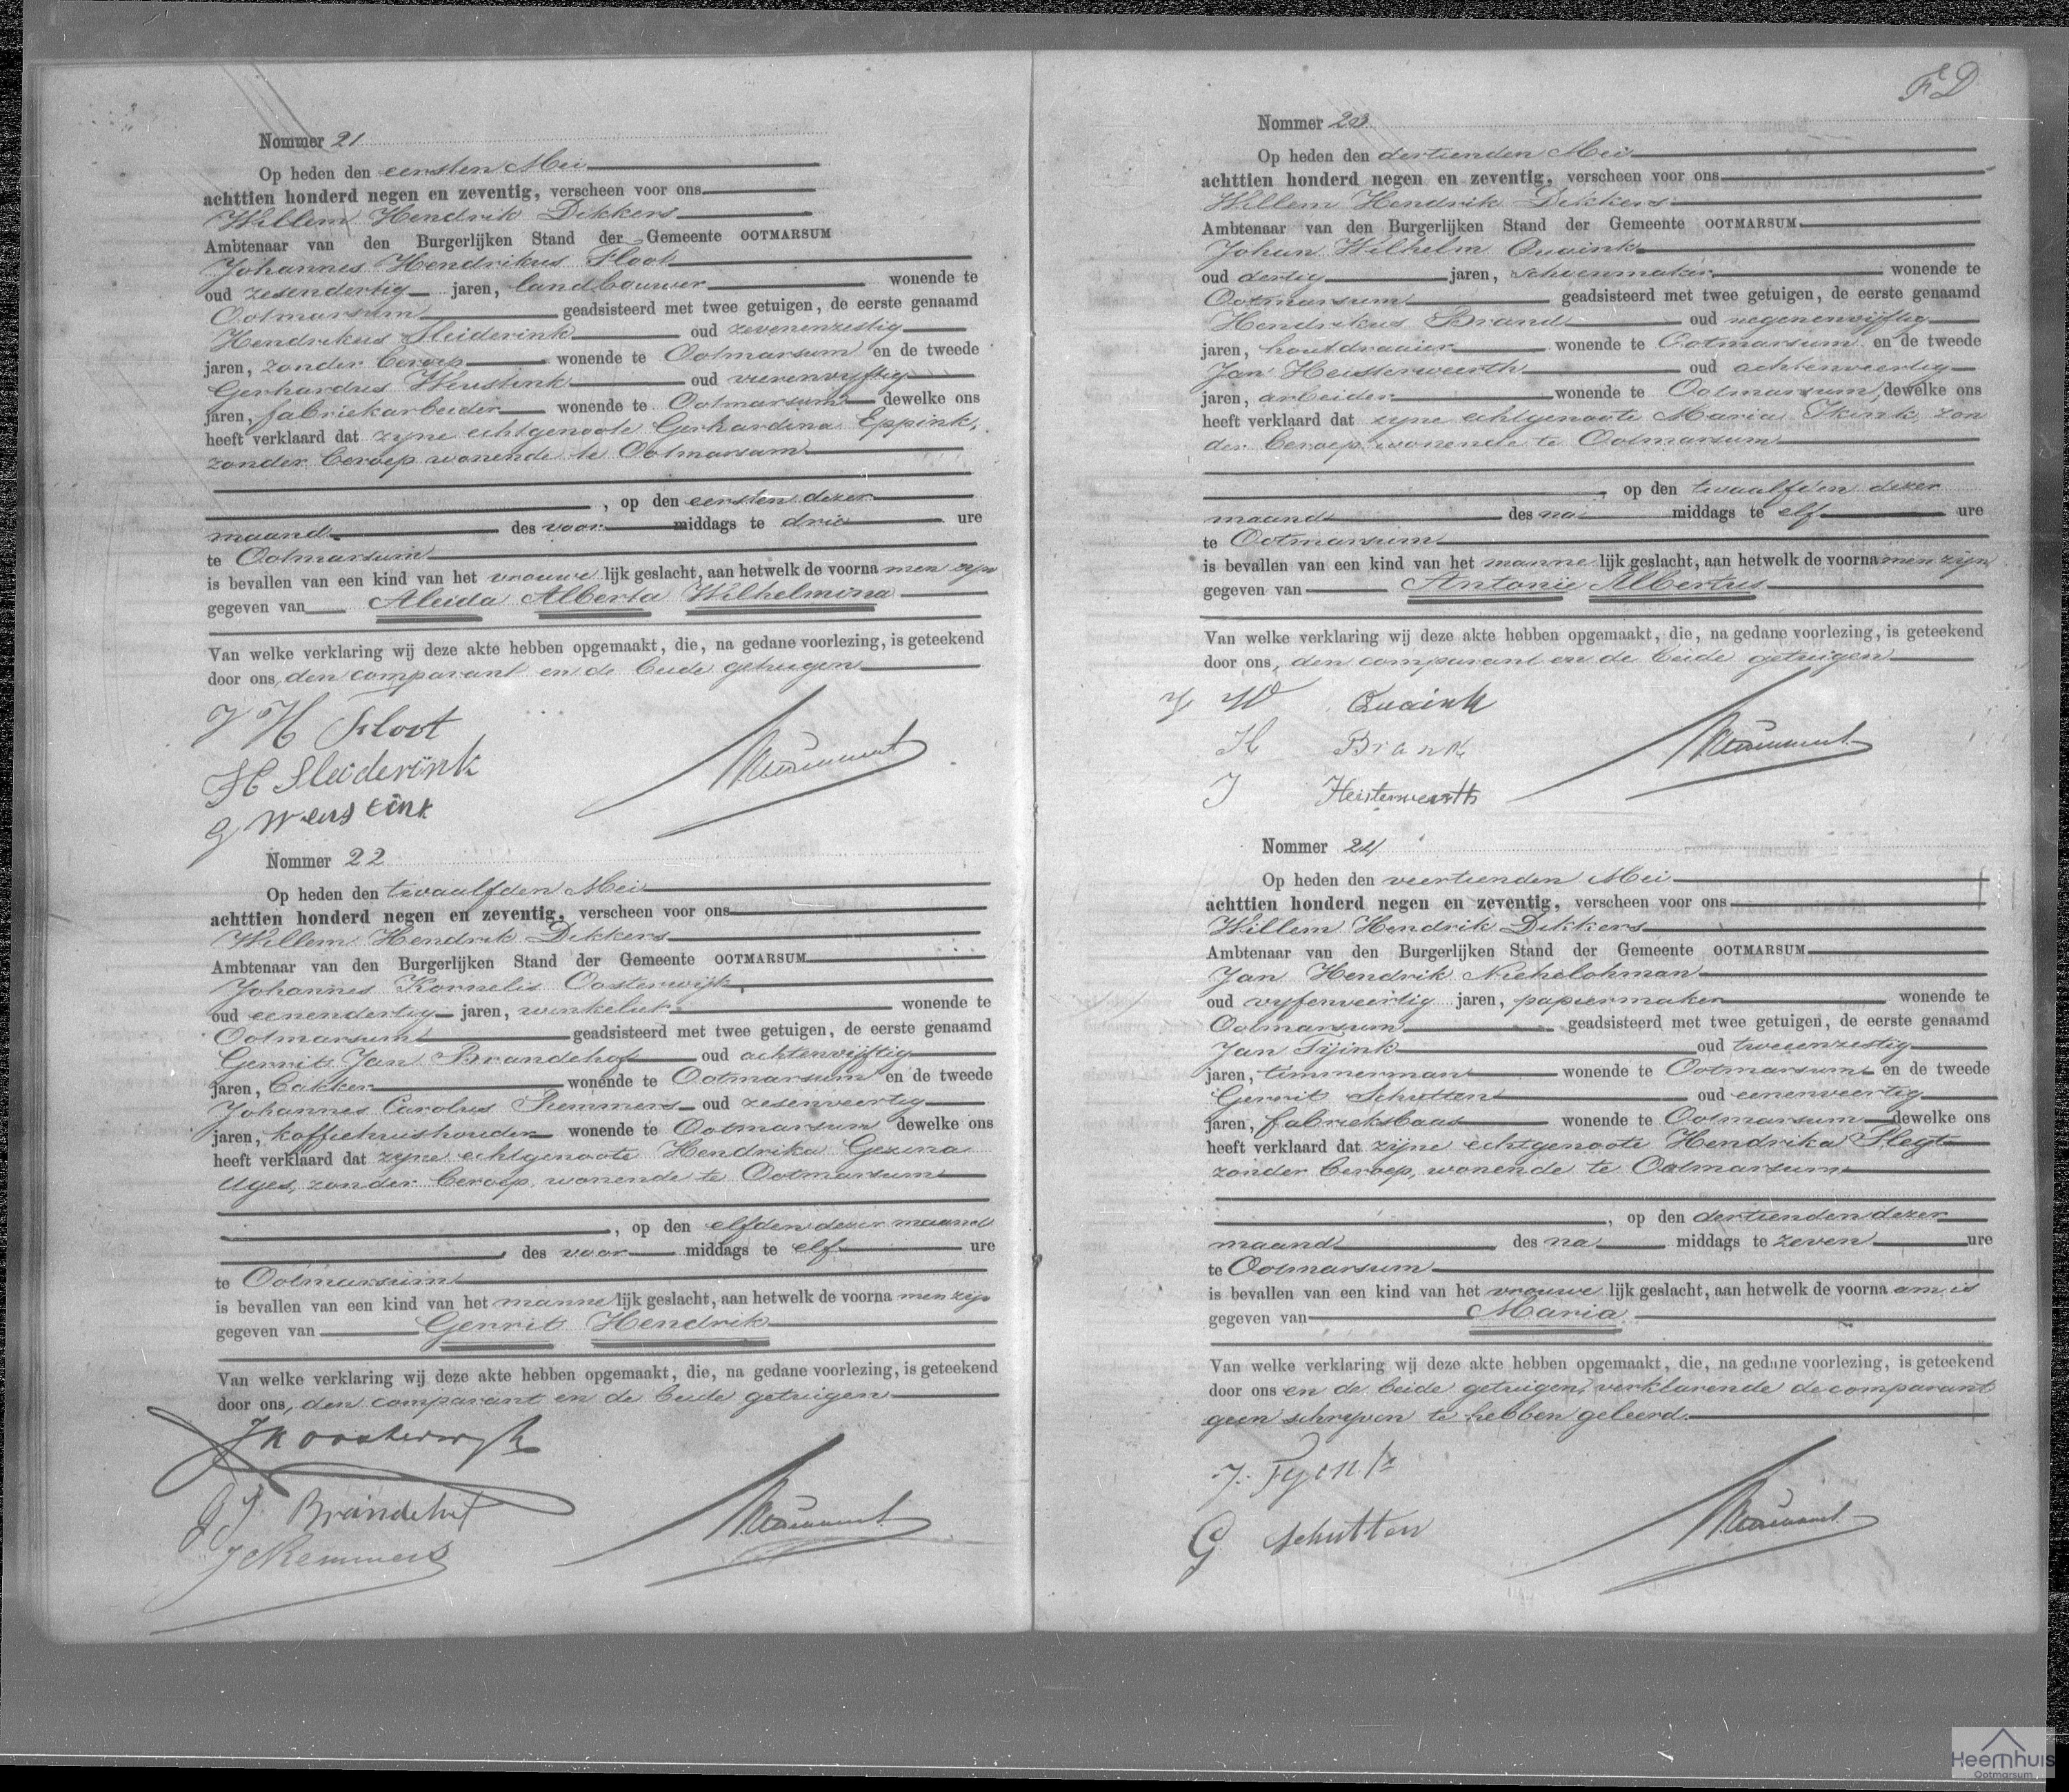 Nommer 21
Op heden den eersten Mei
achttien honderd negen en zeventig, verscheen voor ons
Willem Hendrik Dikkers
Ambtenaar van den Burgerlijken Stand der Gemeente OOTMARSUM
Johannes Hendrikus Sloot
oud zesendertig jaren, landbouwer wonende te
Ootmarsum geadsisteerd met twee getuigen, de eerste genaamd
Hendrikus Sleiderink oud zevenenzestig
jaren, zonder beroep wonende te Ootmarsum en de tweede
Gerhardus Weustink oud vierenvyftig
jaren, fabriekarbeider wonende te Ootmarsum dewelke ons
heeft verklaard dat zyne echtgenoote Gerhardina Eppink,
zonder beroep wonende te Ootmarsum
, op den eersten dezer
maand des voor middags te drie ure
te Ootmarsum
is bevallen van een kind van het vrouwe lijk geslacht, aan hetwelk de voorna men zyn
gegeven van Aleida Alberta Wilhelmina
Van welke verklaring wij deze akte hebben opgemaakt, die, na gedane voorlezing, is geteekend
door ons, den comparant en de beide getuigen
J H Sloot
H Sleiderink
G Weustink
Nommer 22
Op heden den twaalfden Mei
achttien honderd negen en zeventig, verscheen voor ons
Willem Hendrik Dikkers
Ambtenaar van den Burgerlijken Stand der Gemeente OOTMARSUM
Johannes Kornelis Oosterwijk,
oud eenendertig jaren, winkelier wonende te
Ootmarsum geadsisteerd met twee getuigen, de eerste genaamd
Gerrit Jan Brandehof oud achtenvijftig
jaren, bakker wonende te Ootmarsum en de tweede
Johannes Carolus Remmers oud zesenveertig
jaren, koffiehuishouder wonende te Ootmarsum dewelke ons
heeft verklaard dat zyne echtgenoote Hendrika Gezina
Uges, zonder beroep, wonende te Ootmarsum
, op den elfden dezer maand
, des voor middags te elf ure
te Ootmarsum
is bevallen van een kind van het manne lijk geslacht, aan hetwelk de voorna men zijn
gegeven van Gerrit Hendrik
Van welke verklaring wij deze akte hebben opgemaakt, die, na gedane voorlezing, is geteekend
door ons, den comparant en de beide getuigen
J K Oosterwyk
G J Brandehof
J C Remmers
F D
Nommer 23
Op heden den dertienden Mei
achttien honderd negen en zeventig, verscheen voor ons
Willem Hendrik Dikkers
Ambtenaar van den Burgerlijken Stand der Gemeente OOTMARSUM
Johan Wilhelm Quaink
oud dertig jaren, schoenmaker wonende te
Ootmarsum geadsisteerd met twee getuigen, de eerste genaamd
Hendrikus Brand oud negenenvijftig
jaren, houtdraaier wonende te Ootmarsum en de tweede
Jan Heisterweerth oud achtenveertig
jaren, arbeider wonende te Ootmarsum, dewelke ons
heeft verklaard dat zyne echtgenoote Maria Ikink, zon
der beroep wonende te Ootmarsum
, op den twaalfden dezer
maand des na middags te elf ure
te Ootmarsum
is bevallen van een kind van het manne lijk geslacht, aan hetwelk de voorna men zijn
gegeven van Antonie Albertus
Van welke verklaring wij deze akte hebben opgemaakt, die, na gedane voorlezing, is geteekend
door ons, den comparant en de beide getuigen
J W Quaink
H Brand
J Heisterweerth
Nommer 24
Op heden den veertienden Mei
achttien honderd negen en zeventig, verscheen voor ons
Willem Hendrik Dikkers
Ambtenaar van den Burgerlijken Stand der Gemeente OOTMARSUM
Jan Hendrik Niehelohman
oud vyfenveertig jaren, papiermaker wonende te
Ootmarsum geadsisteerd met twee getuigen, de eerste genaamd
Jan Tijink oud tweeenzestig
jaren, timmerman wonende te Ootmarsum en de tweede
Gerrit Schutten oud eenenveertig
jaren, fabrieksbaas wonende te Ootmarsum dewelke ons
heeft verklaard dat zijne echtgenoote Hendrika Slegt
zonder beroep, wonende te Ootmarsum
, op den dertienden dezer
maand des na middags te zeven ure
te Ootmarsum
is bevallen van een kind van het vrouwe lijk geslacht, aan hetwelk de voorna am is
gegeven van Maria
Van welke verklaring wij deze akte hebben opgemaakt, die, na gedane voorlezing, is geteekend
door ons en de beide getuigen, verklarende de comparant
geen schryven te hebben geleerd.
J. Tyink
G Schutten
Heemhuis
Ootmarsum